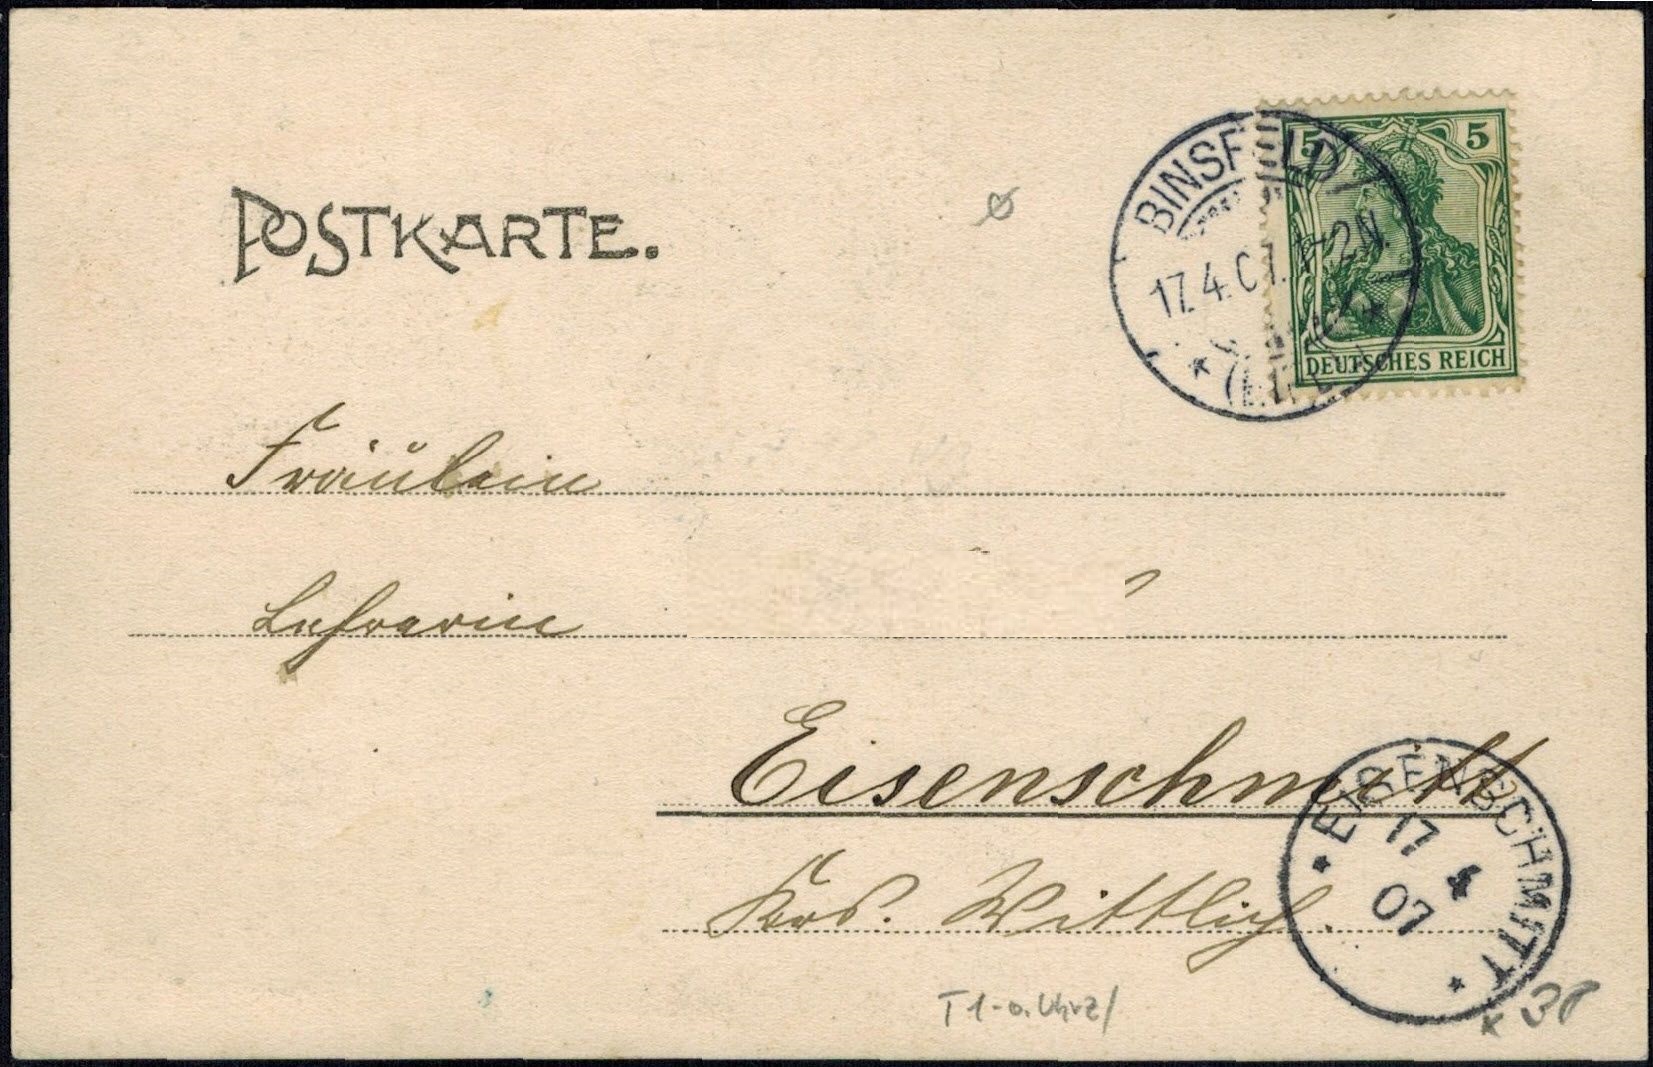 POSTKARTE.
5 5
DEUTSCHES REICH
BINSFELD
17.4.07. 1-2N.
Fräulein
Lehrerin
Eisenschmitt
Krs. Wittlich.
EISENSCHMITT
17
4
07
T 1-o. Uhrz/
38